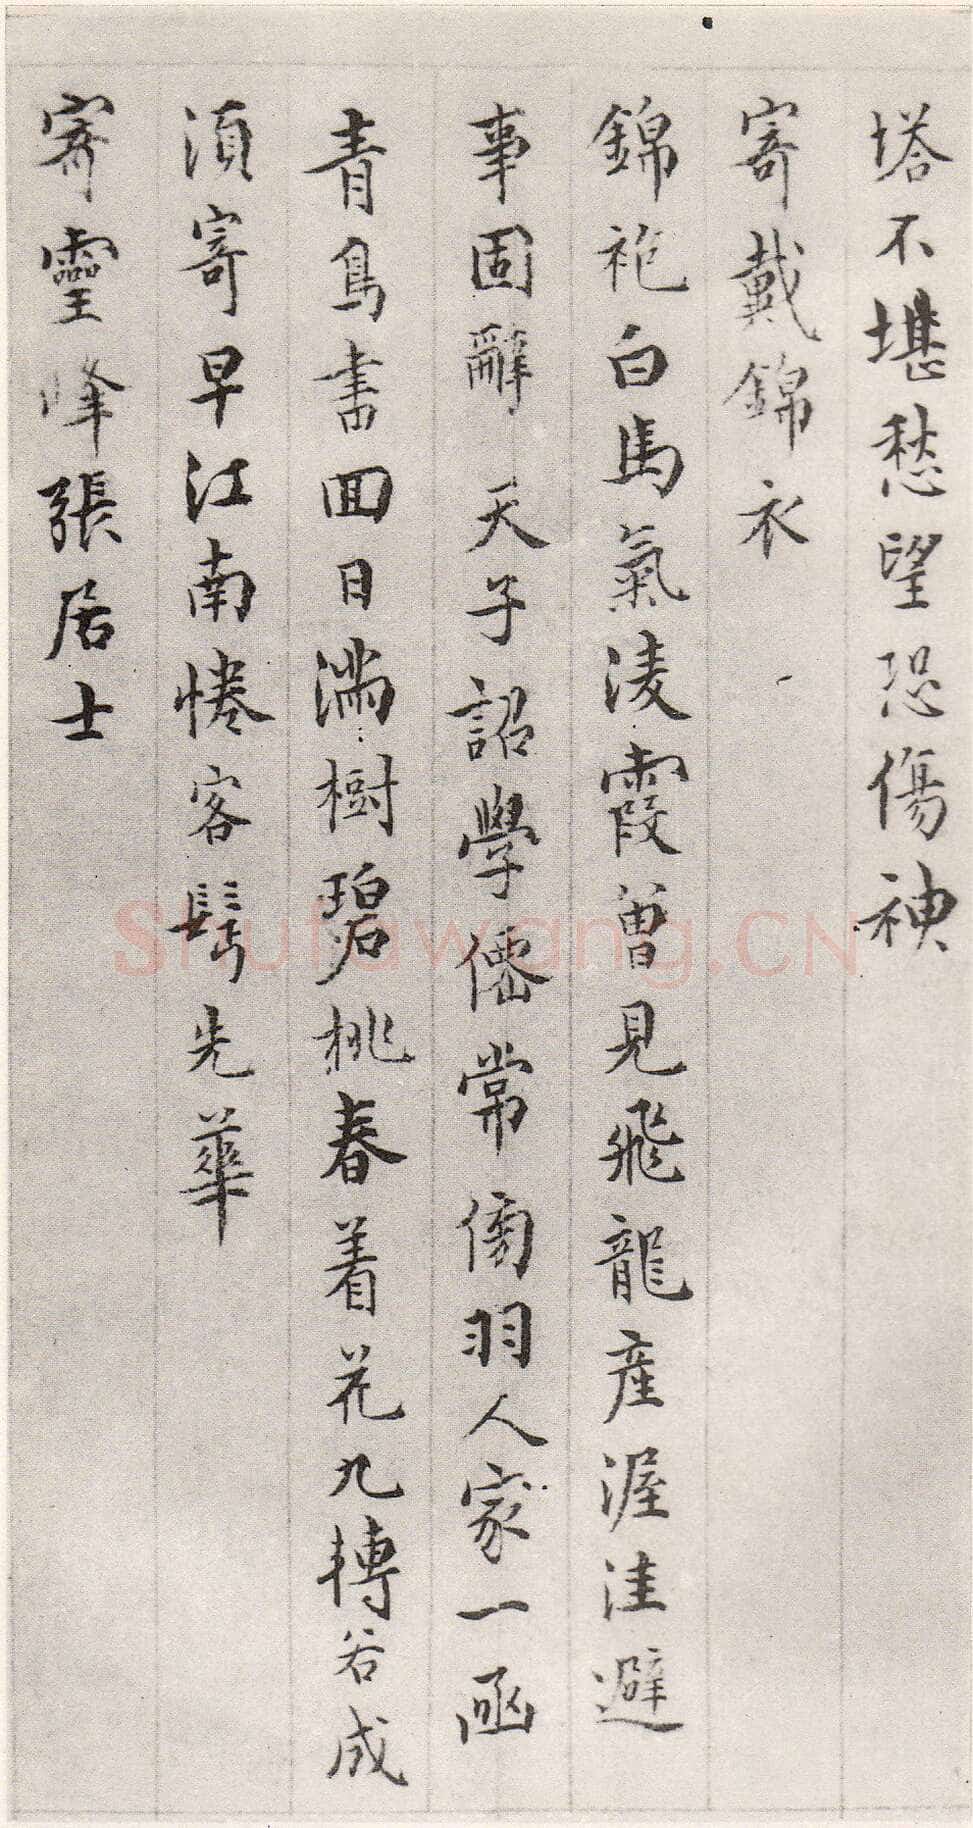 塔不堪愁望恐傷神
寄戴錦衣
錦袍白馬氣淩霞曽見飛龍産渥洼避
事固辭天子詔學僊常傍羽人家一函
青鳥書囬日滿樹碧桃春着花九轉若成
須寄早江南惓客鬂先華
寄靈峰張居士
shufawang.CN